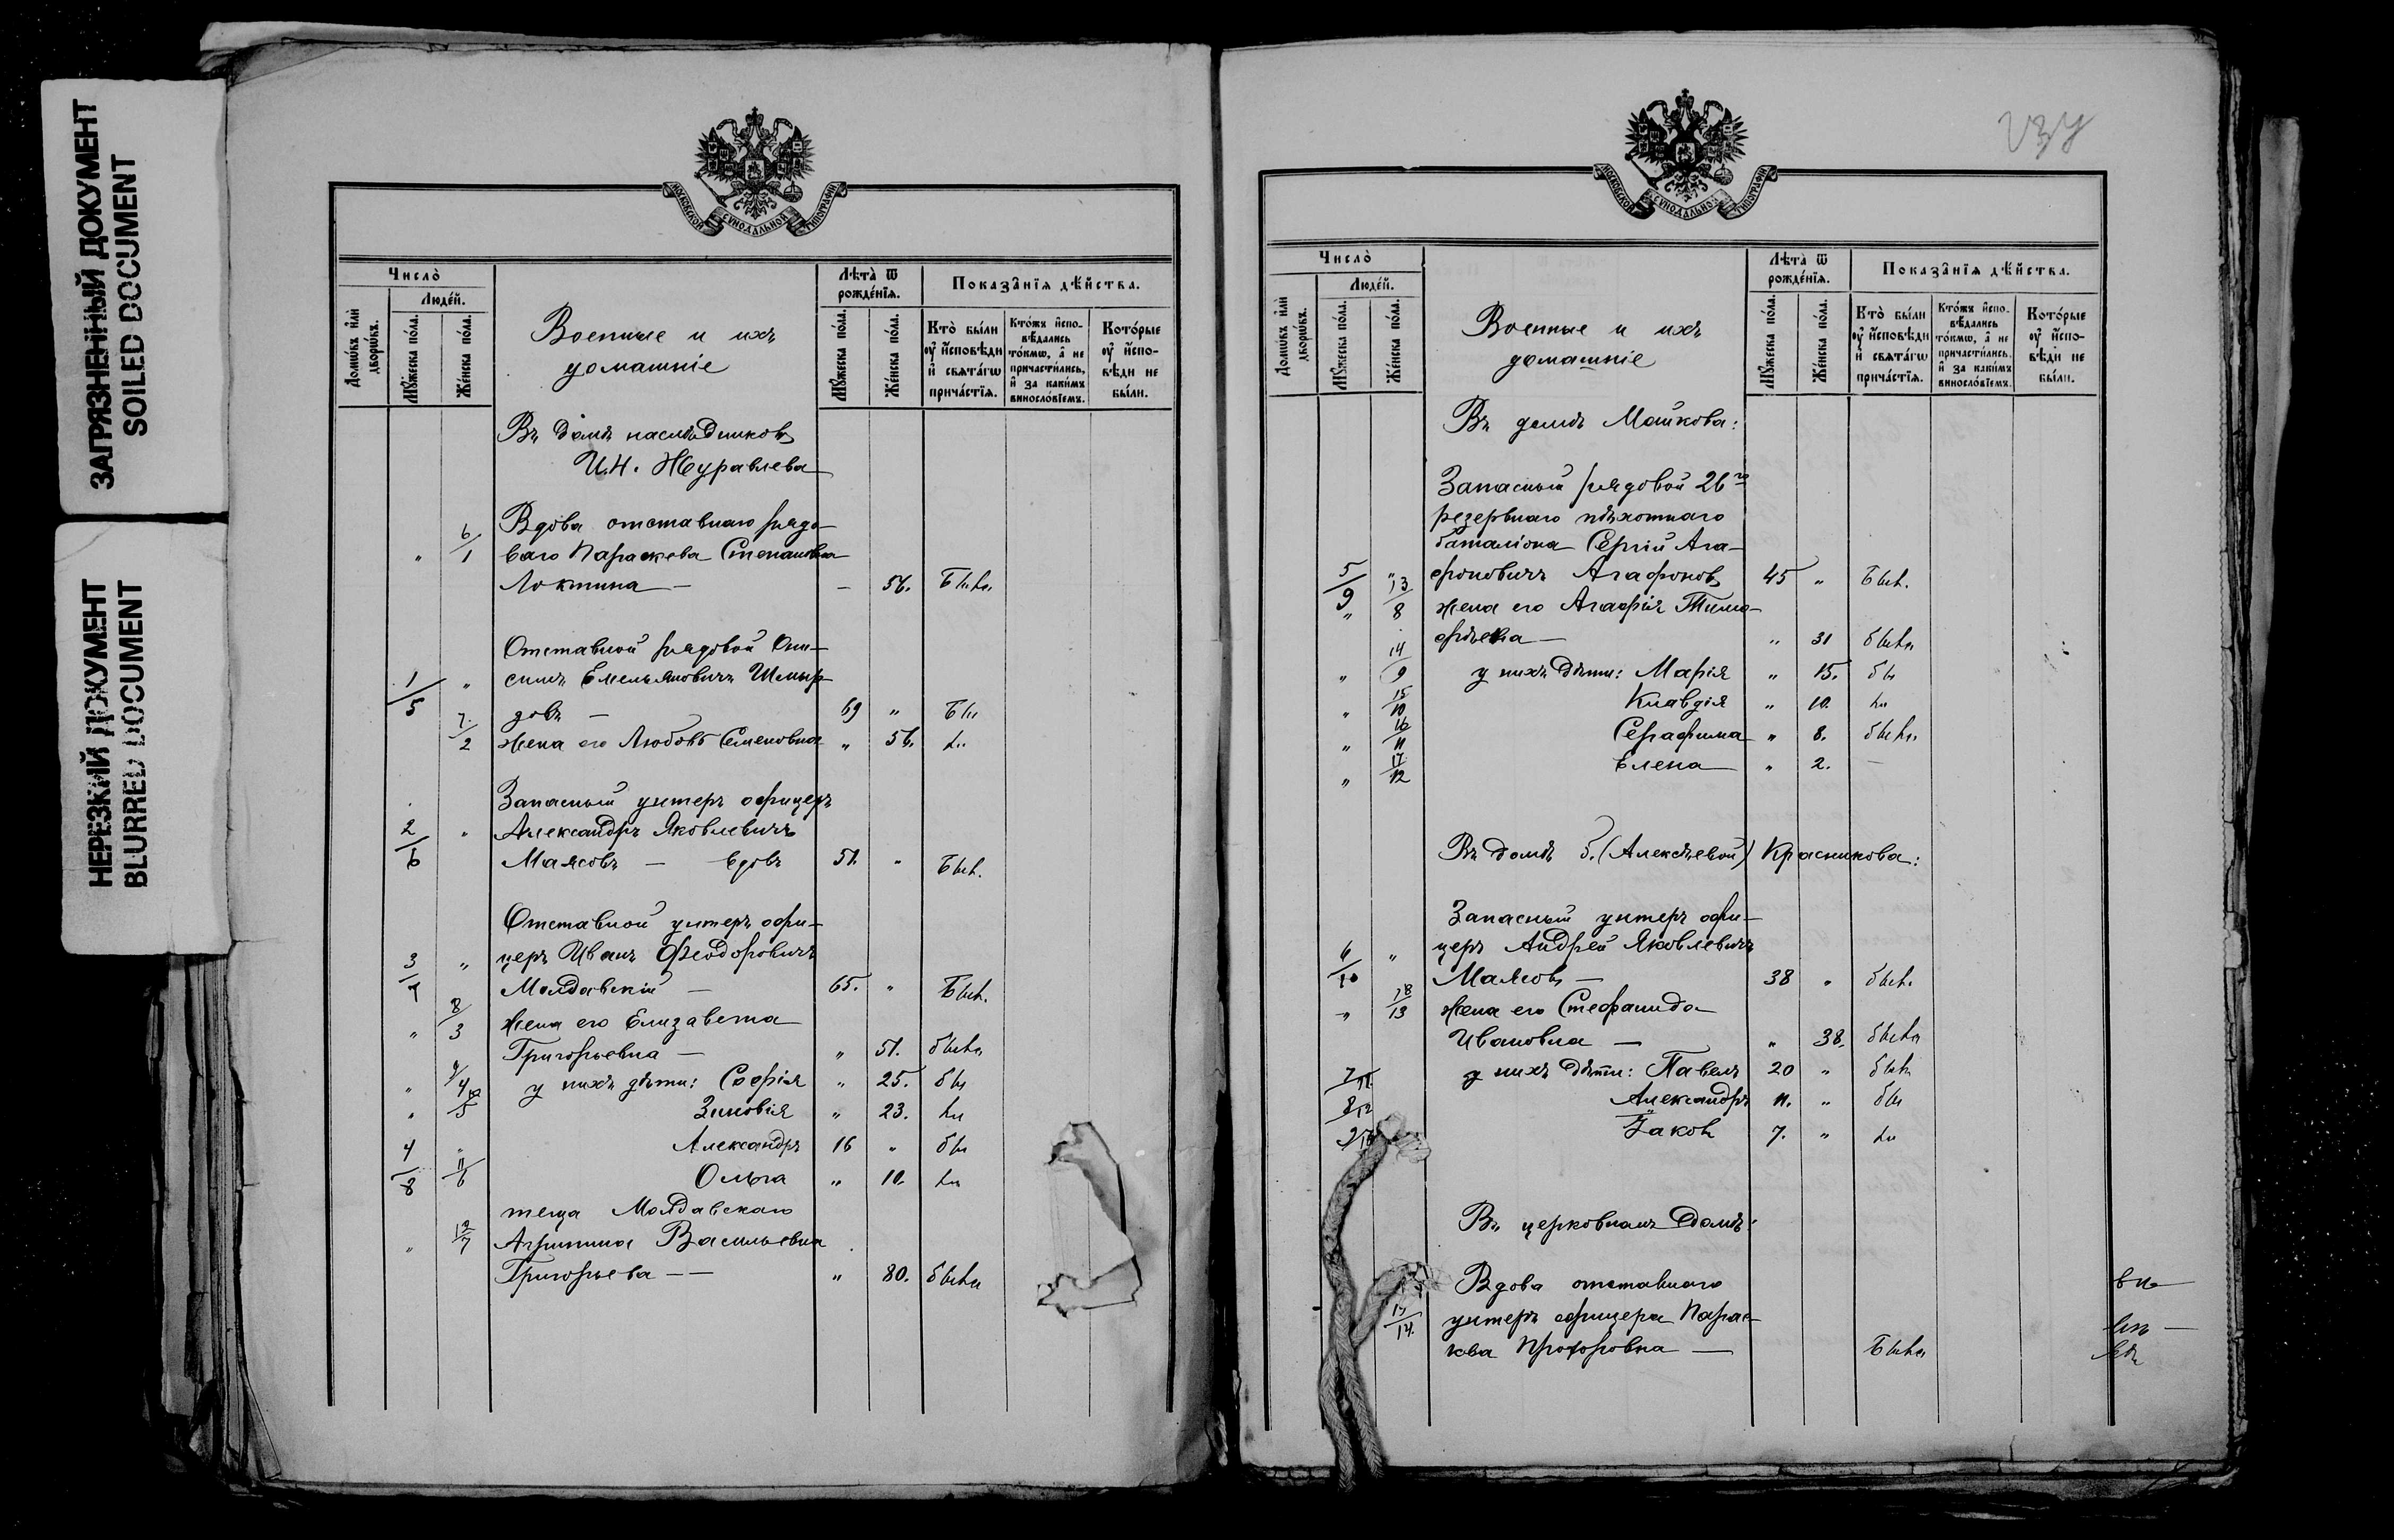 ЗАГРЯЗНЕННЫЙ ДОКУМЕНТ
SOILED DOCUMENT
НЕРЕЗКИЙ ДОКУМЕНТ
BLURRED DOCUMENT
МОСКОВСКОЙ СѴНОДАЛЬНОЙ ТИПОГРАФІИ
Число̀
Людéй.
Домѡ́въ и҆лѝ дворѡ́въ.
Мꙋ́жеска по́ла.
Же́нска по́ла.
Военные и ихъ
домашніе
Лѣта̀ ѿ рожде́нїѧ.
Мꙋ́жеска по́ла.
Же́нска по́ла.
Показа̑нїѧ дѣ́йства.
Кто̀ бы́ли ᲂу҆ и҆сповѣди и҆ свѧта́гѡ прича́стїѧ.
Кто́жъ и҆споⷡѣдались то́кмѡ, а҆ не причасти́лись, и҆ за каки́мъ винословїемъ.
Кото́рые ᲂу҆ и҆сповѣди не бы́ли.
Въ домѣ наслѣдниковъ
И.Н. Журавлева
Вдова отставнаго рядо-
" 6/1 ваго Параскева Степановна
Локтина — — 56. Была
Отставной рядовой Они-
1/5 " симъ Емельяновичъ Шмыр-
довъ — 69 " Бы
7/2 жена его Любовь Семеновна " 56. ли
Запасный унтеръ офицеръ
2/6 " Александръ Яковлевичъ
Маясовъ — вдовъ 51. " Былъ.
Отставной унтеръ офи-
3/7 " церъ Иванъ Феодоровичъ
Молдавскій — 65. " Былъ.
" 8/3 жена его Елизавета
Григорьевна — " 51. была
" 9/4 у нихъ дѣти: Софія " 25. бы
" 10/5 Зиновія " 23. ли
4/8 " Александръ 16 " бы
11/6 Ольга " 10. ли
теща Молдавскаго
" 12/7 Агрипина Васильевна
Григорьева — — " 80. была
МОСКОВСКОЙ СѴНОДАЛЬНОЙ ТИПОГРАФІИ
Число̀
Людéй.
Домѡ́въ и҆лѝ дворѡ́въ.
Мꙋ́жеска по́ла.
Же́нска по́ла.
Военные и ихъ
домашніе
Лѣта̀ ѿ рожде́нїѧ.
Мꙋ́жеска по́ла.
Же́нска по́ла.
Показа̑нїѧ дѣ́йства.
Кто̀ бы́ли ᲂу҆ и҆сповѣди и҆ свѧта́гѡ прича́стїѧ.
Кто́жъ и҆споⷡѣдались то́кмѡ, а҆ не причасти́лись, и҆ за каки́мъ винословїемъ.
Кото́рые ᲂу҆ и҆сповѣди не бы́ли.
Въ домѣ Машкова:
Запасный рядовой 26го
резервнаго пѣхотнаго
баталіона Сергій Ага-
5/9 " фоновичъ Агафоновъ 45 " Былъ.
" 13/8 жена его Агафія Тимо-
фѣевна — " 31 была
" 14/9 у нихъ дѣти: Марія " 15. бы
" 15/10 Клавдія " 10. ли
" 16/11 Серафима " 8. была
" 17/12 Елена " 2. —
Въ домѣ б. (Алексѣевой) Красникова:
Запасный унтеръ офи-
6/10 " церъ Андрей Яковлевичъ
Маясовъ — 38 " былъ.
" 18/13 жена его Стефанида
Ивановна — " 38. была
7/11 у нихъ дѣти: Павелъ 20 " былъ
8/12 Александръ 11. " бы
Іаковъ 7. " ли
Въ церковномъ домѣ:
Вдова отставнаго
14. унтеръ офицера Парас-
кева Прохоровна — Была